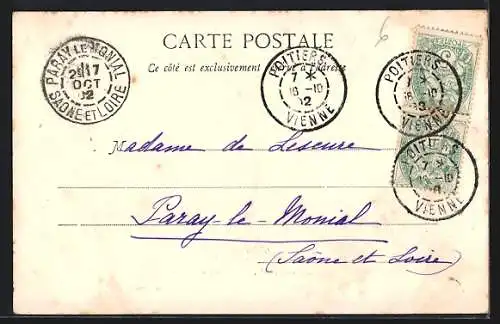 CARTE POSTALE
Ce côté est exclusivement réservé à l'adresse
6
PARAY-LE-MONIAL
17
OCT
02
SAONE-ET-LOIRE
POITIERS
7 *
16 -10
02
VIENNE
POITIERS
7 *
16 -10
02
VIENNE
POITIERS
7 *
16 -10
VIENNE
Madame de Lescure
Paray-le-Monial
(Saône et Loire)